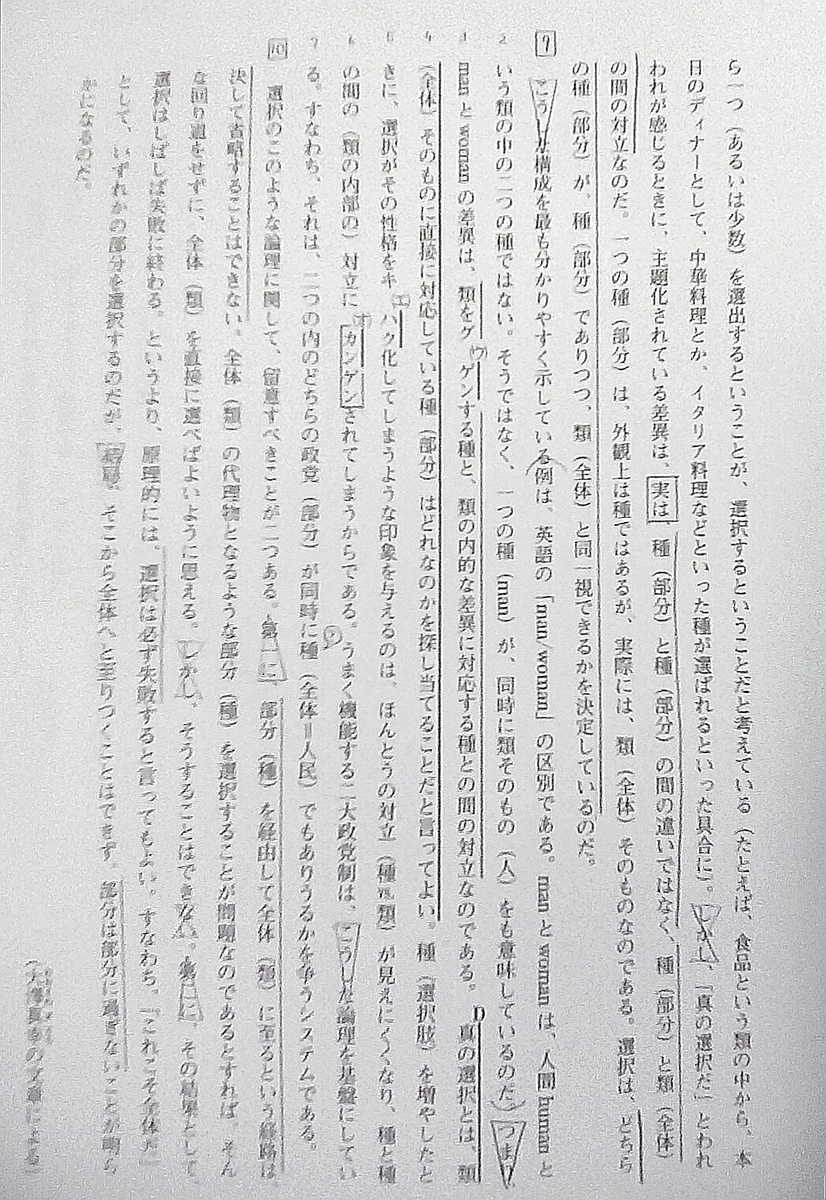 ら一つ（あるいは少数）を選出するということが、選択するということだと考えている（たとえば、食品という類の中から、本
日のディナーとして、中華料理とか、イタリア料理などといった種が選ばれるといった具合に）。しかし、「真の選択だ」とわれ
われが感じるときに、主題化されている差異は、実は、種（部分）と種（部分）の間の違いではなく、種（部分）と類（全体）
の間の対立なのだ。一つの種（部分）は、外観上は種ではあるが、実際には、類（全体）そのものなのである。選択は、どちら
の種（部分）が、種（部分）でありつつ、類（全体）と同一視できるかを決定しているのだ。
9
こうした構成を最も分かりやすく示している例は、英語の「man/woman」の区別である。man と woman は、人間 human と
2
いう類の中の二つの種ではない。そうではなく、一つの種（man）が、同時に類そのもの（人）をも意味しているのだ。つまり、
3
man と woman の差異は、類をグ(ウ)ゲンする種と、類の内的な差異に対応する種との間の対立なのである。D真の選択とは、類
4
（全体）そのものに直接に対応している種（部分）はどれなのかを探し当てることだと言ってよい。種（選択肢）を増やしたと
5
きに、選択がその性格をキ(エ)ハク化してしまうような印象を与えるのは、ほんとうの対立（種vs.類）が見えにくくなり、種と種
6
の間の（類の内部の）対立に(オ)カンゲンされてしまうからである。うまく機能する二大政党制は、こうした論理を基盤にしてい
7
る。すなわち、それは、二つの内のどちらの政党（部分）が同時に種（全体＝人民）でもありうるかを争うシステムである。
10
選択のこのような論理に関して、留意すべきことが二つある。第一に、部分（種）を経由して全体（類）に至るという経路は、
決して省略することはできない。全体（類）の代理物となるような部分（種）を選択することが問題なのであるとすれば、そん
な回り道をせずに、全体（類）を直接に選べばよいように思える。しかし、そうすることはできない。第二に、その結果として、
選択はしばしば失敗に終わる。というより、原理的には、選択は必ず失敗すると言ってもよい。すなわち、「これこそ全体だ」
として、いずれかの部分を選択するのだが、結局、そこから全体へと至りつくことはできず、部分は部分に過ぎないことが明ら
かになるのだ。
（大澤真幸の文章による）